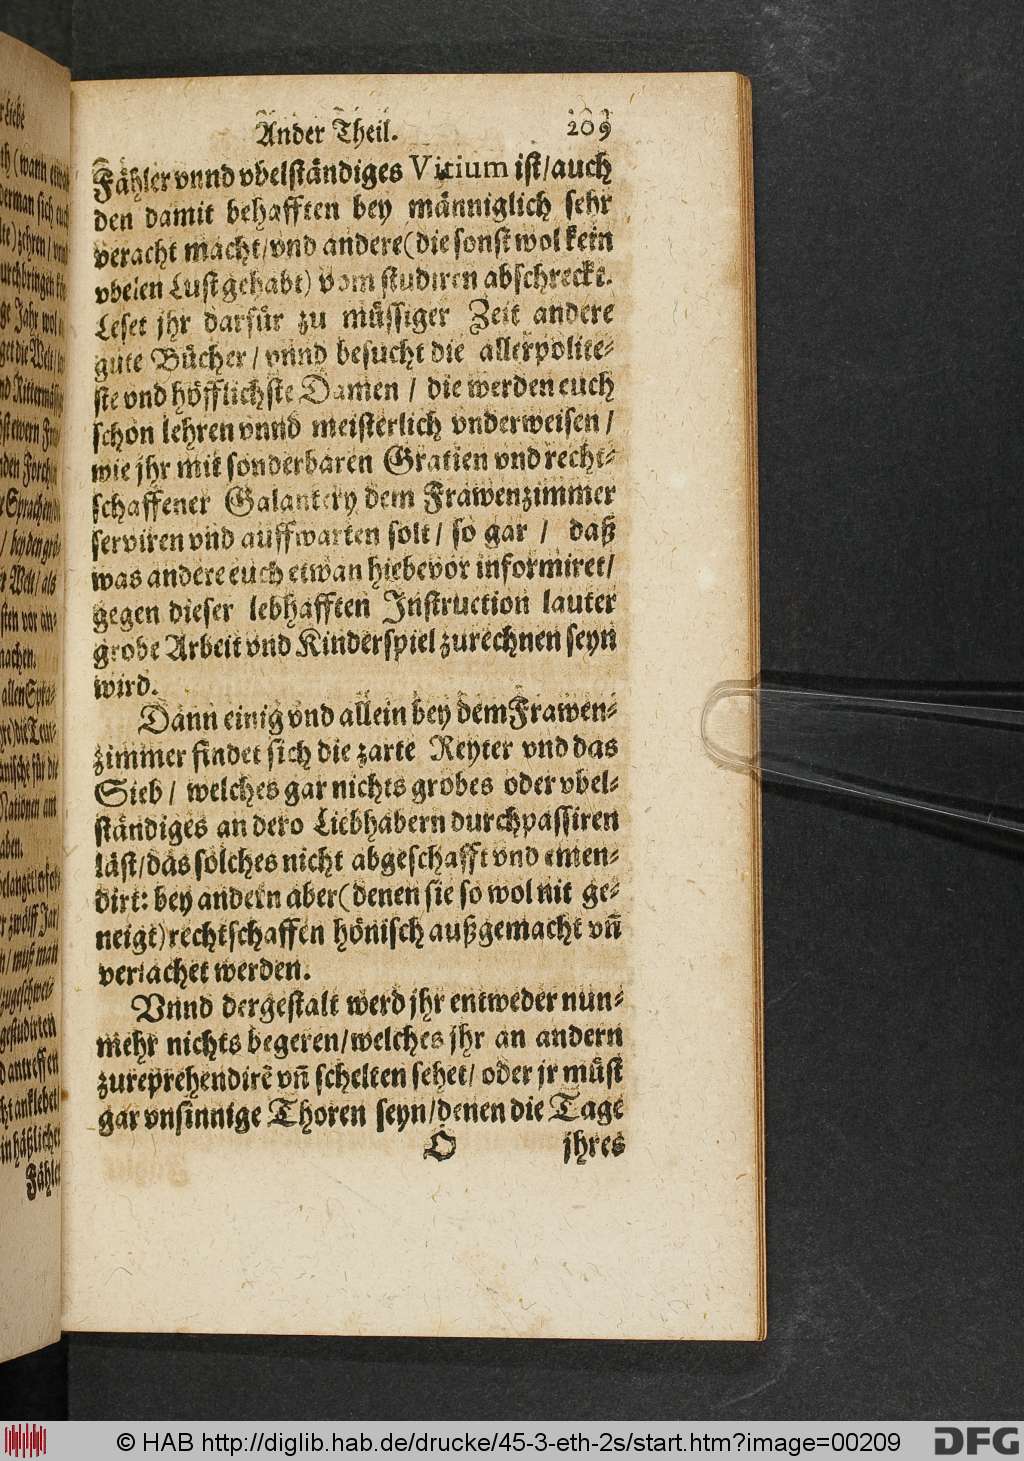 Ander Theil. 209
Fähler vnnd vbelständiges Vitium ist/auch
den damit behafften bey männiglich sehr
veracht macht/vnd andere(die sonst wol kein
vbelen Lust gehabt) vom studiren abschreckt.
Leset jhr darfür zu müssiger Zeit andere
gute Bücher/ vnnd besucht die allerpolite-
ste vnd höfflichste Damen / die werden euch
schon lehren vnnd meisterlich vnderweisen /
wie jhr mit sonderbaren Gratien vnd recht-
schaffener Galantery dem Frawenzimmer
serviren vnd auffwarten solt/ so gar / daß
was andere euch etwan hiebevor informiret/
gegen dieser lebhafften Instruction lauter
grobe Arbeit vnd Kinderspiel zurechnen seyn
wird.
Dann einig vnd allein bey dem Frawen-
zimmer findet sich die zarte Reyter vnd das
Sieb / welches gar nichts grobes oder vbel-
ständiges an dero Liebhabern durchpassiren
läst/das solches nicht abgeschafft vnd emen-
dirt: bey andern aber(denen sie so wol nit ge-
neigt)rechtschaffen hönisch außgemacht vn̄
verlachet werden.
Vnnd dergestalt werd jhr entweder nun-
mehr nichts begeren/welches jhr an andern
zureprehendirē vn̄ schelten sehet/ oder jr müst
gar vnsinnige Thoren seyn/denen die Tage
O jhres
r Liebe
derman sich
Jahr wol
get die Welt/
nd Rittermäs
den Forcht
r Sprachen
/ bey den grö-
r Welt/ als
sten vor an-
machen.
allen Spra-
Nationen am
aben.
er zwölff Jar/
n/ muß man
gestudirten
d antreffen
cht anklebet/
in häßlicher
Fähler
© HAB http://diglib.hab.de/drucke/45-3-eth-2s/start.htm?image=00209
DFG